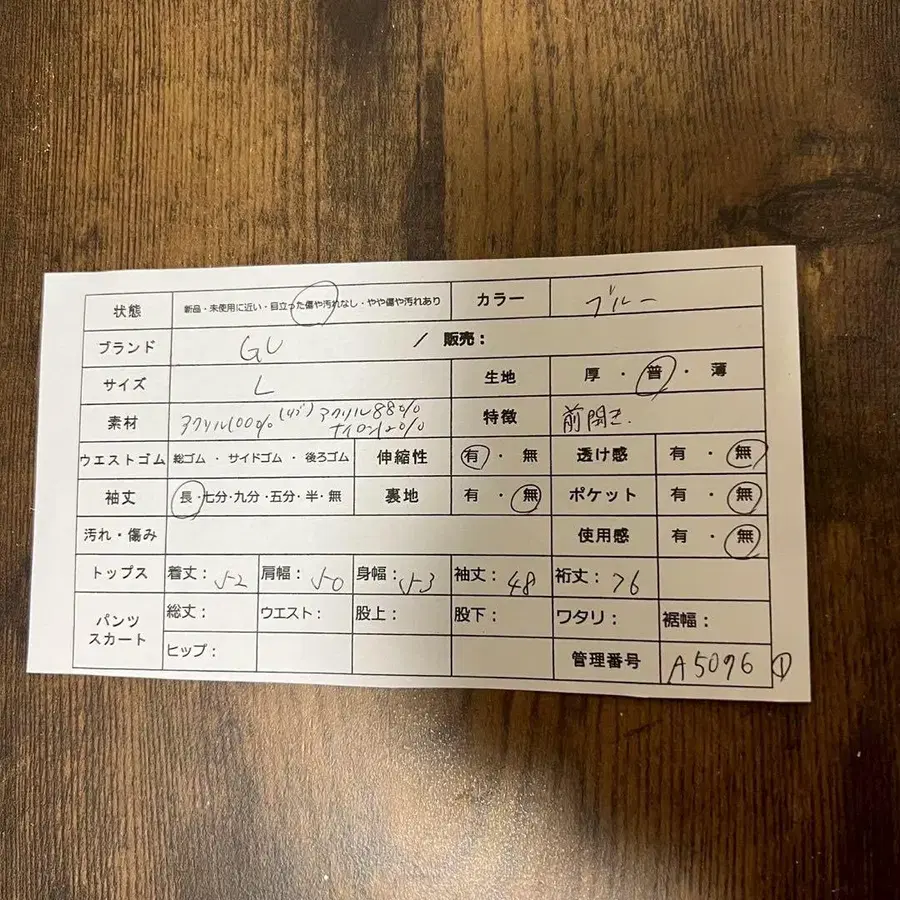 状態 新品・未使用に近い・目立った傷や汚れなし・やや傷や汚れあり カラー ブルー
ブランド GU / 販売：
サイズ L 生地 厚・普・薄
素材 アクリル100% (リブ) アクリル88% ナイロン12% 特徴 前開き
ウエストゴム 総ゴム・サイドゴム・後ろゴム 伸縮性 有・無 透け感 有・無
袖丈 長・七分・九分・五分・半・無 裏地 有・無 ポケット 有・無
汚れ・傷み 使用感 有・無
トップス 着丈：52 肩幅：50 身幅：53 袖丈：48 裄丈：76
パンツ スカート 総丈： ウエスト： 股上： 股下： ワタリ： 裾幅：
ヒップ： 管理番号 A5096 ①